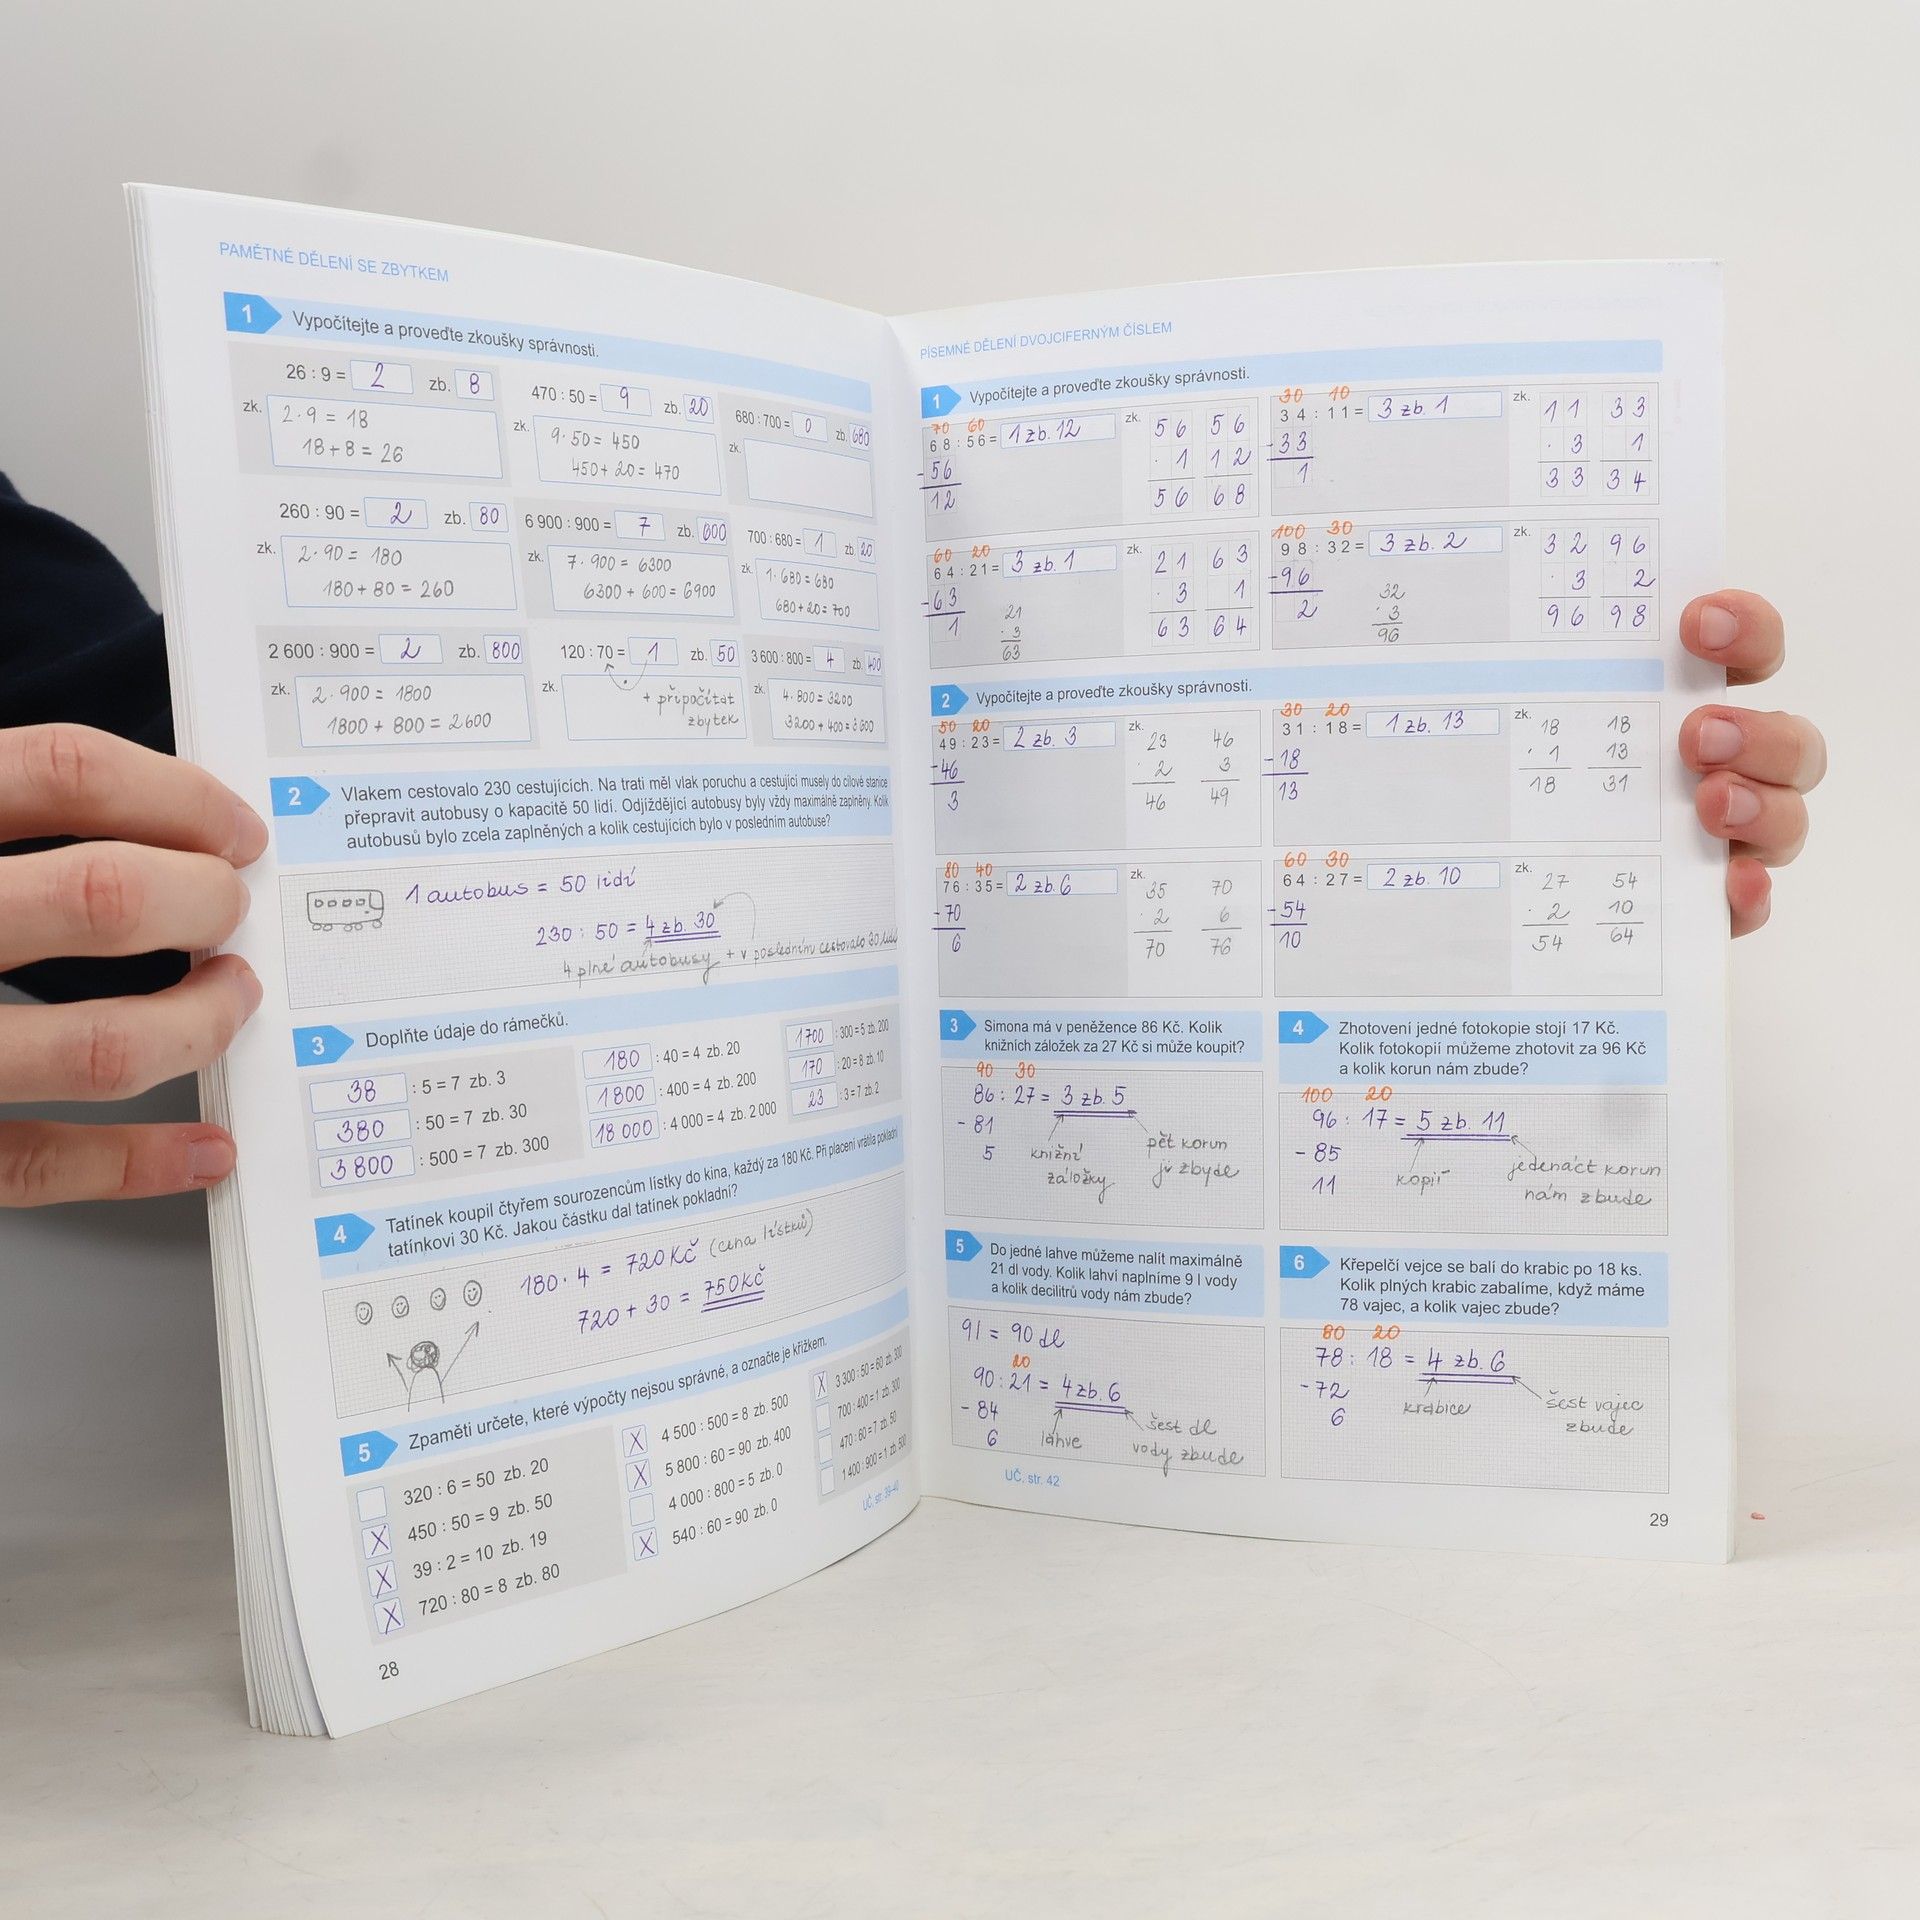 PAMĚTNÉ DĚLENÍ SE ZBYTKEM
1 Vypočítejte a proveďte zkoušky správnosti.
26 : 9 = 2 zb. 8
zk. 2 · 9 = 18
18 + 8 = 26
470 : 50 = 9 zb. 20
zk. 9 · 50 = 450
450 + 20 = 470
680 : 700 = 0 zb. 680
zk.
260 : 90 = 2 zb. 80
zk. 2 · 90 = 180
180 + 80 = 260
6 900 : 900 = 7 zb. 600
zk. 7 · 900 = 6300
6300 + 600 = 6900
700 : 680 = 1 zb. 20
zk. 1 · 680 = 680
680 + 20 = 700
2 600 : 900 = 2 zb. 800
zk. 2 · 900 = 1800
1800 + 800 = 2600
120 : 70 = 1 zb. 50
zk. + připočítat
zbytek
3 600 : 800 = 4 zb. 400
zk. 4 · 800 = 3200
3200 + 400 = 3600
2 Vlakem cestovalo 230 cestujících. Na trati měl vlak poruchu a cestující musely do cílové stanice
přepravit autobusy o kapacitě 50 lidí. Odjíždějící autobusy byly vždy maximálně zaplněny. Kolik
autobusů bylo zcela zaplněných a kolik cestujících bylo v posledním autobuse?
1 autobus = 50 lidí
230 : 50 = 4 zb. 30
4 plné autobusy + v posledním cestovalo 30 lidí
3 Doplňte údaje do rámečků.
38 : 5 = 7 zb. 3
380 : 50 = 7 zb. 30
3 800 : 500 = 7 zb. 300
180 : 40 = 4 zb. 20
1800 : 400 = 4 zb. 200
18 000 : 4 000 = 4 zb. 2 000
1700 : 300 = 5 zb. 200
170 : 20 = 8 zb. 10
23 : 3 = 7 zb. 2
4 Tatínek koupil čtyřem sourozencům lístky do kina, každý za 180 Kč. Při placení vrátila pokladní
tatínkovi 30 Kč. Jakou částku dal tatínek pokladní?
180 · 4 = 720 Kč (cena lístků)
720 + 30 = 750 Kč
5 Zpaměti určete, které výpočty nejsou správné, a označte je křížkem.
320 : 6 = 50 zb. 20
X 450 : 50 = 9 zb. 50
X 39 : 2 = 10 zb. 19
X 720 : 80 = 8 zb. 80
X 4 500 : 500 = 8 zb. 500
X 5 800 : 60 = 90 zb. 400
4 000 : 800 = 5 zb. 0
X 540 : 60 = 90 zb. 0
X 3 300 : 50 = 60 zb. 300
700 : 400 = 1 zb. 300
470 : 60 = 7 zb. 50
1 400 : 900 = 1 zb. 500
UČ. str. 39-40
28
PÍSEMNÉ DĚLENÍ DVOJCIFERNÝM ČÍSLEM
1 Vypočítejte a proveďte zkoušky správnosti.
70 60
68 : 56 = 1 zb. 12
-56
12
zk. 56 56
· 1 12
56 68
30 10
34 : 11 = 3 zb. 1
-33
1
zk. 11 33
· 3 1
33 34
60 20
64 : 21 = 3 zb. 1
-63
1
21
· 3
63
zk. 21 63
· 3 1
63 64
100 30
98 : 32 = 3 zb. 2
-96
2
32
· 3
96
zk. 32 96
· 3 2
96 98
2 Vypočítejte a proveďte zkoušky správnosti.
50 20
49 : 23 = 2 zb. 3
-46
3
zk. 23 46
· 2 3
46 49
30 20
31 : 18 = 1 zb. 13
-18
13
zk. 18 18
· 1 13
18 31
80 40
76 : 35 = 2 zb. 6
-70
6
zk. 35 70
· 2 6
70 76
60 30
64 : 27 = 2 zb. 10
-54
10
zk. 27 54
· 2 10
54 64
3 Simona má v peněžence 86 Kč. Kolik
knižních záložek za 27 Kč si může koupit?
90 30
86 : 27 = 3 zb. 5
- 81
5
knižní
záložky
pět korun
jí zbyde
4 Zhotovení jedné fotokopie stojí 17 Kč.
Kolik fotokopií můžeme zhotovit za 96 Kč
a kolik korun nám zbude?
100 20
96 : 17 = 5 zb. 11
- 85
11
kopií
jedenáct korun
nám zbude
5 Do jedné lahve můžeme nalít maximálně
21 dl vody. Kolik lahví naplníme 9 l vody
a kolik decilitrů vody nám zbude?
9l = 90 dl
20
90 : 21 = 4 zb. 6
- 84
6
láhve
šest dl
vody zbude
6 Křepelčí vejce se balí do krabic po 18 ks.
Kolik plných krabic zabalíme, když máme
78 vajec, a kolik vajec zbude?
80 20
78 : 18 = 4 zb. 6
- 72
6
krabice
šest vajec
zbude
UČ. str. 42
29